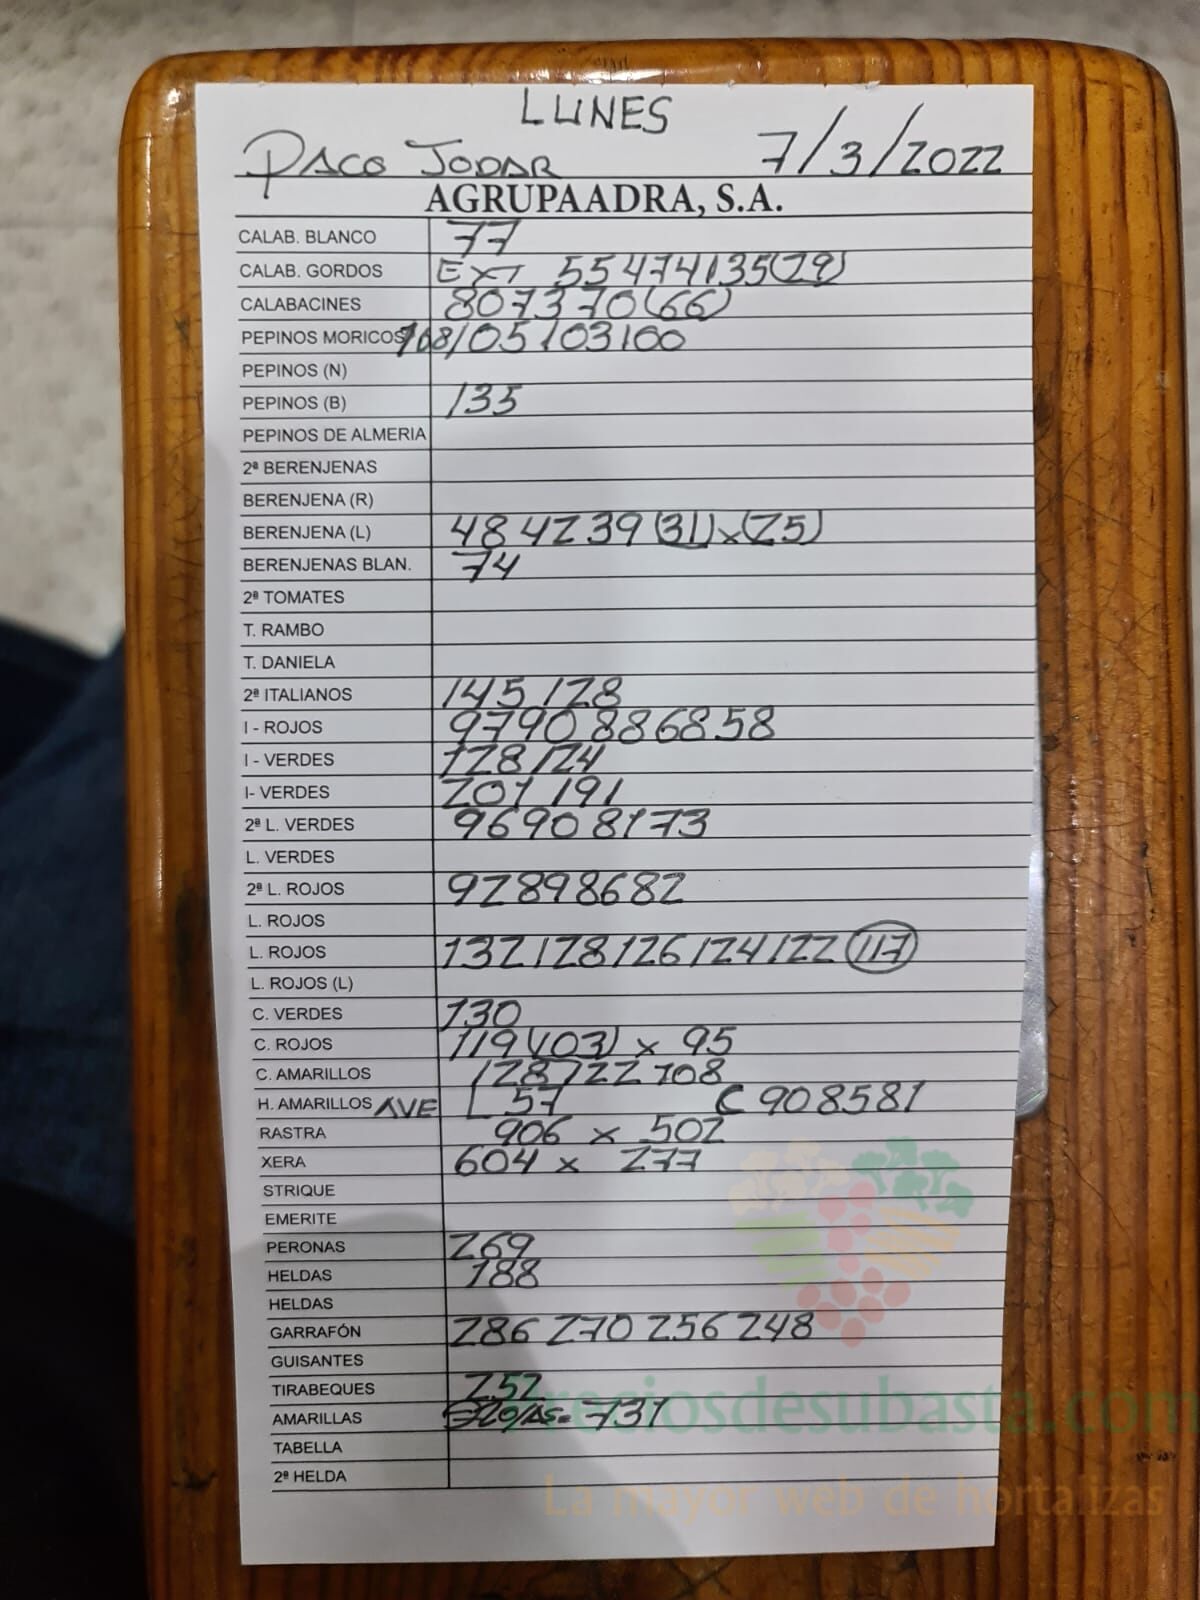 LUNES
PACO JODAR 7/3/2022
AGRUPAADRA, S.A.
CALAB. BLANCO 77
CALAB. GORDOS EXT 55 47 41 35 (29)
CALABACINES 80 73 70 (66)
PEPINOS MORICOS 168 105 103 100
PEPINOS (N)
PEPINOS (B) 135
PEPINOS DE ALMERIA
2ª BERENJENAS
BERENJENA (R)
BERENJENA (L) 48 42 39 (31) x (25)
BERENJENAS BLAN. 74
2ª TOMATES
T. RAMBO
T. DANIELA
2ª ITALIANOS 145 128
I - ROJOS 97 90 88 68 58
I - VERDES 128 124
I- VERDES 201 191
2ª L. VERDES 96 90 81 73
L. VERDES
2ª L. ROJOS 92 89 86 82
L. ROJOS
L. ROJOS 132 128 126 124 122 (117)
L. ROJOS (L)
C. VERDES 130
C. ROJOS 119 (103) x 95
C. AMARILLOS 128 122 108
H. AMARILLOS AVE L 57 C 90 85 81
RASTRA 906 x 502
XERA 604 x 277
STRIQUE
EMERITE
PERONAS 269
HELDAS 188
HELDAS
GARRAFÓN 286 270 256 248
GUISANTES
TIRABEQUES 252
AMARILLAS = 731
TABELLA
2ª HELDA
Preciosdesubasta.com
La mayor web de hortalizas